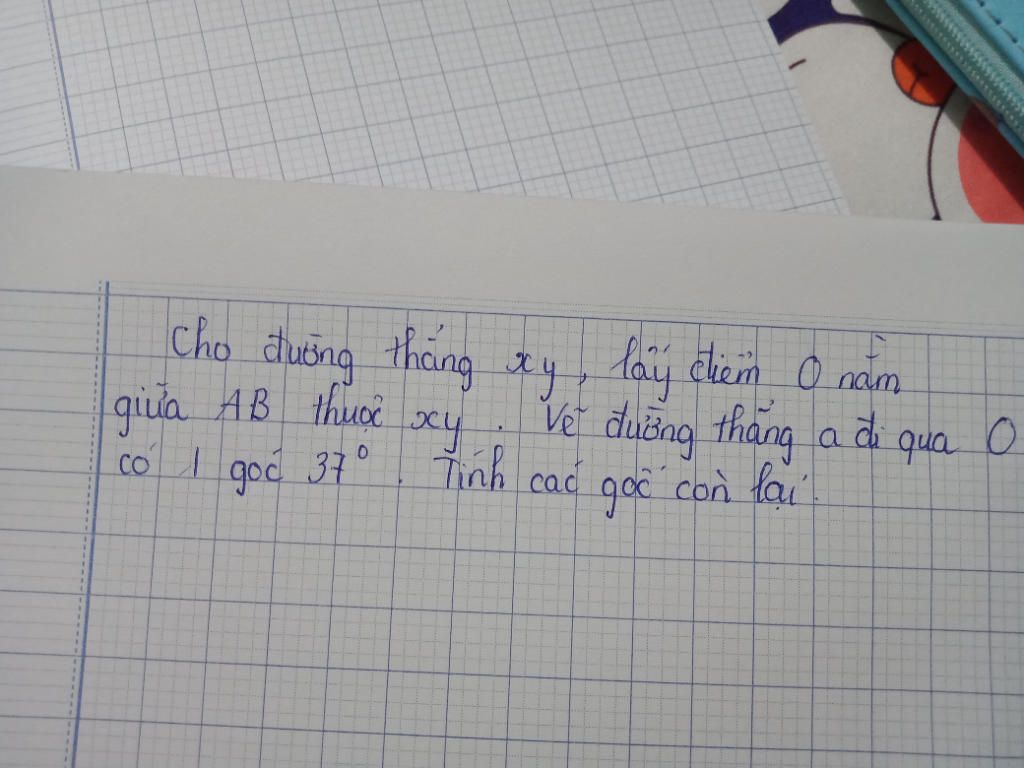 Cho đường thẳng xy, lấy điểm O nằm
giữa AB thuộc xy. Vẽ đường thẳng a đi qua O
có 1 góc 37°. Tính các góc còn lại.